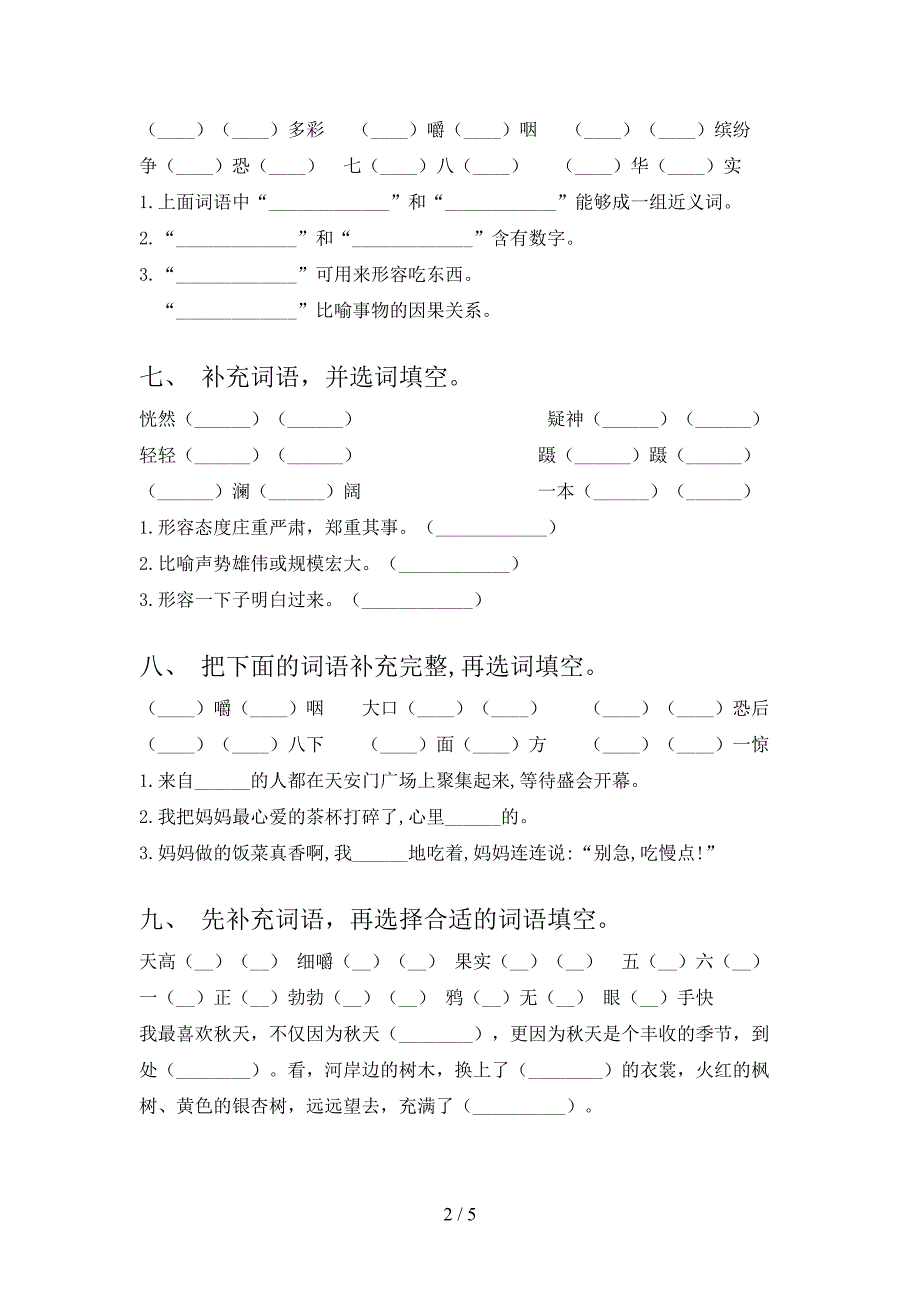 （____）（____）多彩 （____）嚼（____）咽 （____）（____）缤纷
争（____）恐（____） 七（____）八（____） （____）华（____）实
1.上面词语中“_____________”和“____________”能够成一组近义词。
2.“_____________”和“_____________”含有数字。
3.“_____________”可用来形容吃东西。
“_____________”比喻事物的因果关系。
七、 补充词语，并选词填空。
恍然（______）（______） 疑神（______）（______）
轻轻（______）（______） 蹑（______）蹑（______）
（______）澜（______）阔 一本（______）（______）
1.形容态度庄重严肃，郑重其事。（____________）
2.比喻声势雄伟或规模宏大。（____________）
3.形容一下子明白过来。（____________）
八、 把下面的词语补充完整,再选词填空。
（____）嚼（____）咽 大口（____）（____） （____）（____）恐后
（____）（____）八下 （____）面（____）方 （____）（____）一惊
1.来自______的人都在天安门广场上聚集起来,等待盛会开幕。
2.我把妈妈最心爱的茶杯打碎了,心里______的。
3.妈妈做的饭菜真香啊,我______地吃着,妈妈连连说:“别急,吃慢点!”
九、 先补充词语，再选择合适的词语填空。
天高（__）（__） 细嚼（__）（__） 果实（__）（__） 五（__）六（__）
一（__）正（__）勃勃（__）（__） 鸦（__）无（__） 眼（__）手快
我最喜欢秋天，不仅因为秋天（________），更因为秋天是个丰收的季节，到
处（________）。看，河岸边的树木，换上了（________）的衣裳，火红的枫
树、黄色的银杏树，远远望去，充满了（__________）。
2 / 5